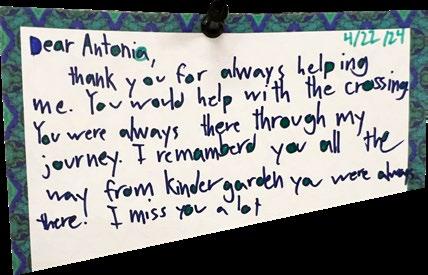 4/22/24
Dear Antonia,
thank you for always helping
me. You would help with the crossing
You were always there through my
journey. I remamberd you all the
way from kindergarden you were always
there! I miss you a lot